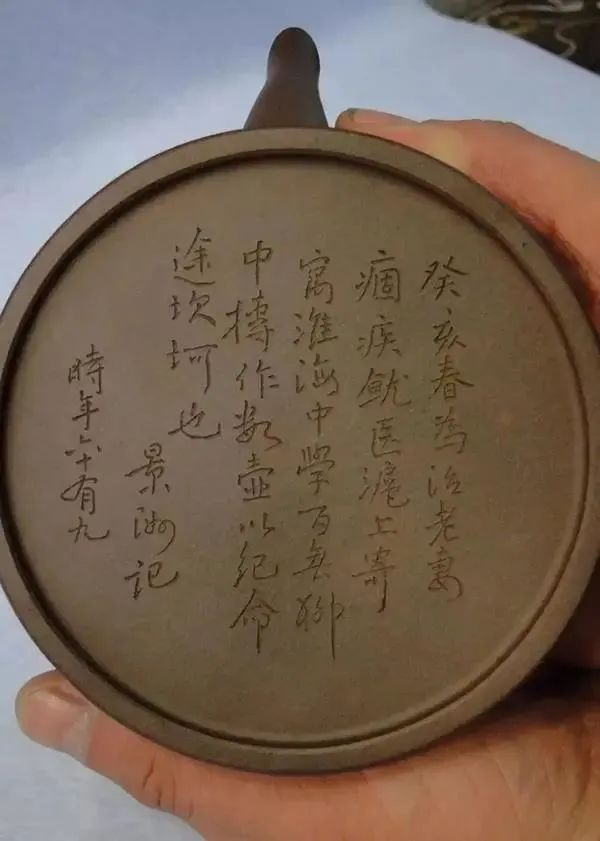 癸亥春為治老妻
痼疾就医滬上寄
寓淮海中学百无聊
中摶作数壶以纪命
途坎坷也
景洲记
時年六十有九